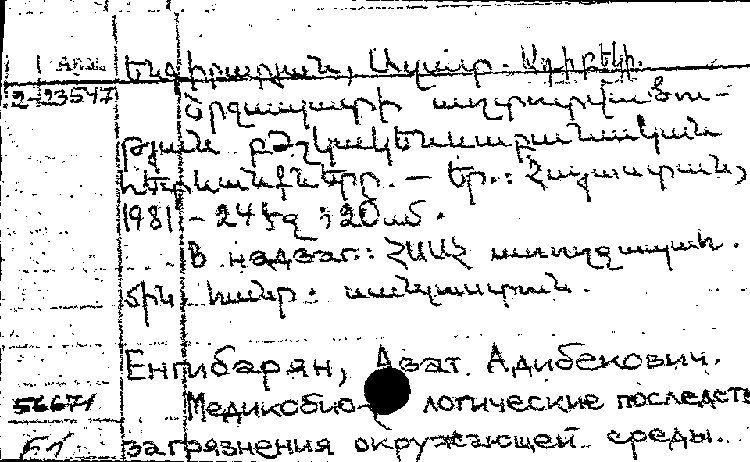 Арм. Ենգիբարյան, Ազատ. Ադիբեկի.
2-23547 Շրջապատի աղտոտվածու-
թյան բժշկակենսաբանական
հետևանքները. — Եր.: Հայաստան,
1981 - 24 էջ ; 20 սմ.
В надзаг.: ՀՍՍՀ առողջապահ.
մին. հանր.
Енгибарян, Азат. Адибекович.
56671 Медикобио- логические последств
загрязнения окружающей среды.